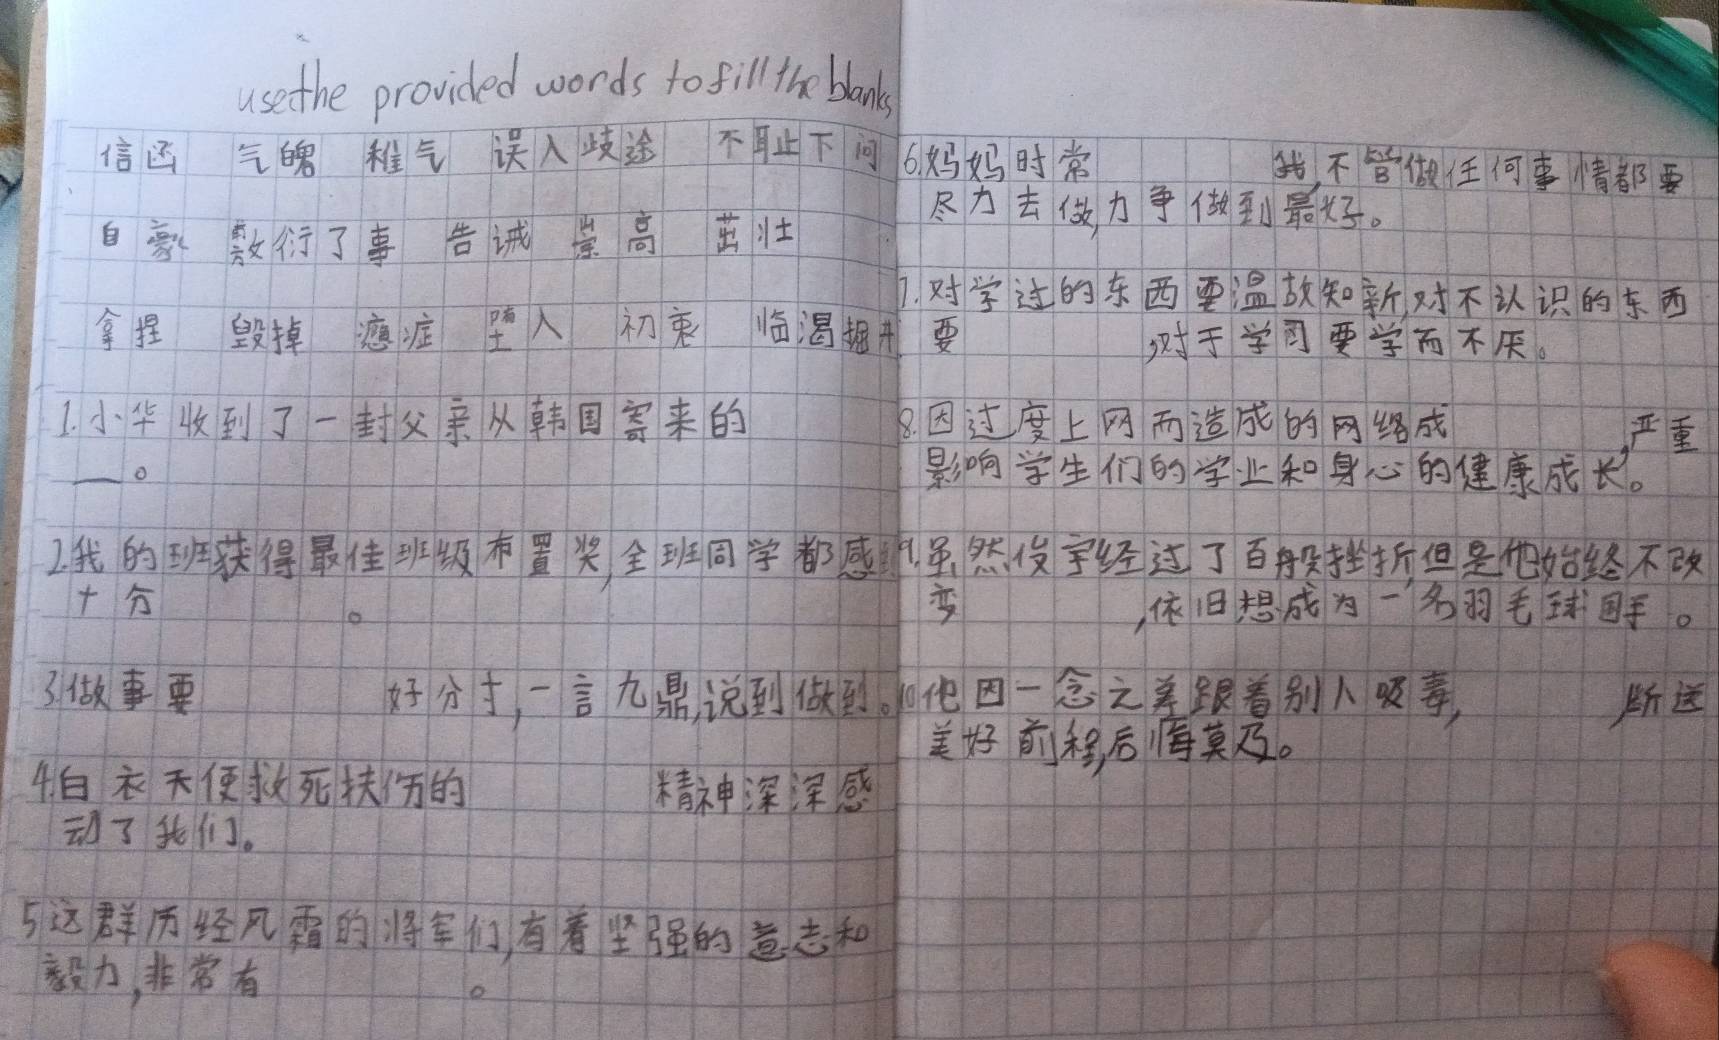 use the provided words to fill the blanks
信函 气魄 稚气 误入歧途 不耻下问
自豪 敷衍了事 告诫 崇高 茁壮
拿捏 毁掉 瘾症 堕入 初衷 临渴掘井
1.小华收到了一封父亲从韩国寄来的
__。
2.我的班获得最佳班级布置奖,全班同学都感到
十分 。
3.做事要 好分寸,一言九鼎,说到做到。
4.白衣天使救死扶伤的 精神深深感
动了我们。
5.这群历经风霜的将军们,有着坚强的意志和
毅力,非常有 。
6.妈妈时常 我,不管做任何事情都要
尽力去做,力争做到最好。
7.对学过的东西要温故知新,对不认识的东西
要 ,对于学习要学而不厌。
8.因过度上网而造成的网络成 ,严重
影响学生们的学业和身心的健康成长。
9.虽然俊宇经过了百般挫折,但是他始终不改
变 ,依旧想成为一名羽毛球国手。
10.他因一念之差跟着别人吸毒, ,断送
美好前程,后悔莫及。